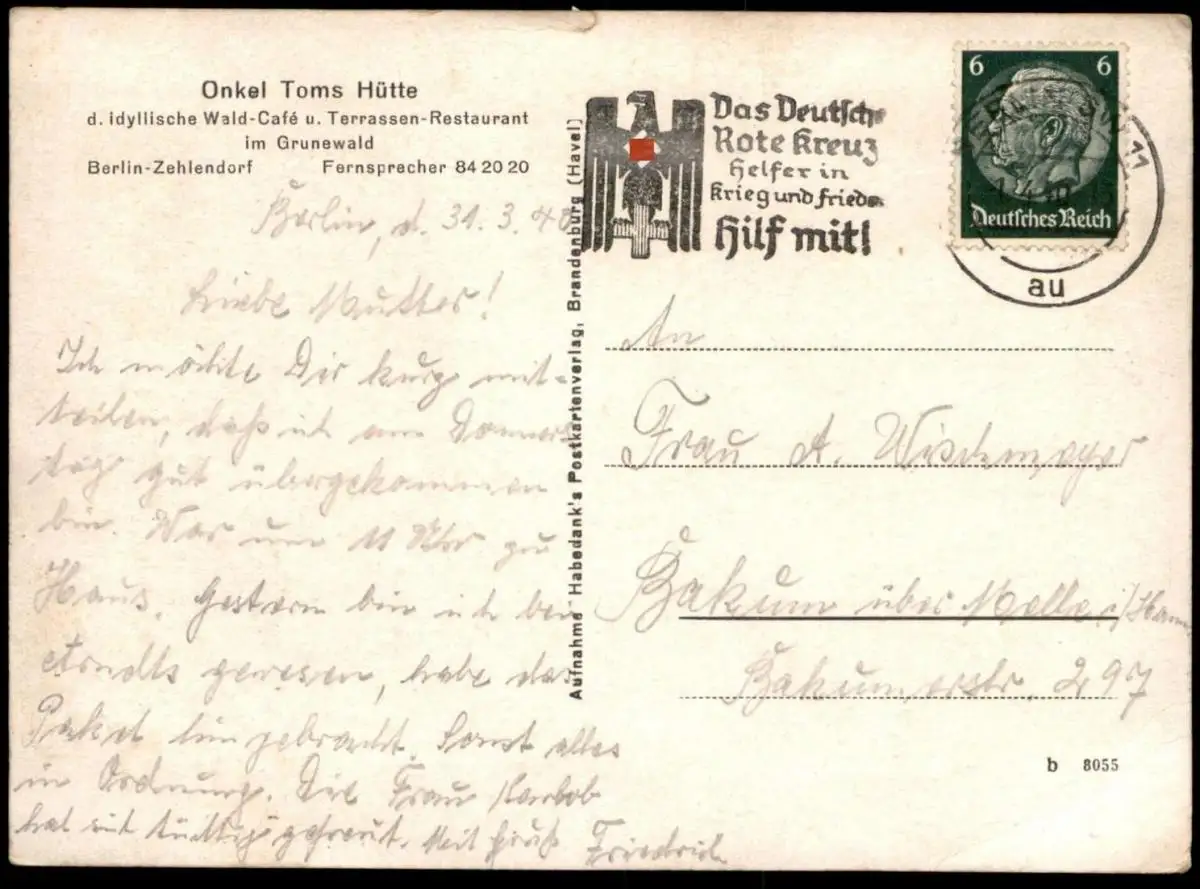 Onkel Toms Hütte
d. idyllische Wald-Café u. Terrassen-Restaurant
im Grunewald
Berlin-Zehlendorf Fernsprecher 84 20 20
Berlin, d. 31. 3. 40
Liebe Mutter!
Ich möchte Dir kurz mit-
teilen, daß ich am Donners
tag gut übergekommen
bin. War um 11 Uhr zu
Haus. Gestern bin ich bei
Arndts gewesen, habe das
Paket hingebracht. Sonst alles
in Ordnung. Die Frau
hat sich tüchtig gefreut. Mit Gruß Friedrich
Aufnahme Habedank's Postkartenverlag, Brandenburg (Havel)
Das Deutsche
Rote Kreuz
Helfer in
Krieg und Frieden
Hilf mit!
6 6
Deutsches Reich
11
au
An
Frau A. Wiedemeyer
Bakum über Melle i/Hann
Bakumerstr. 297
b 8055